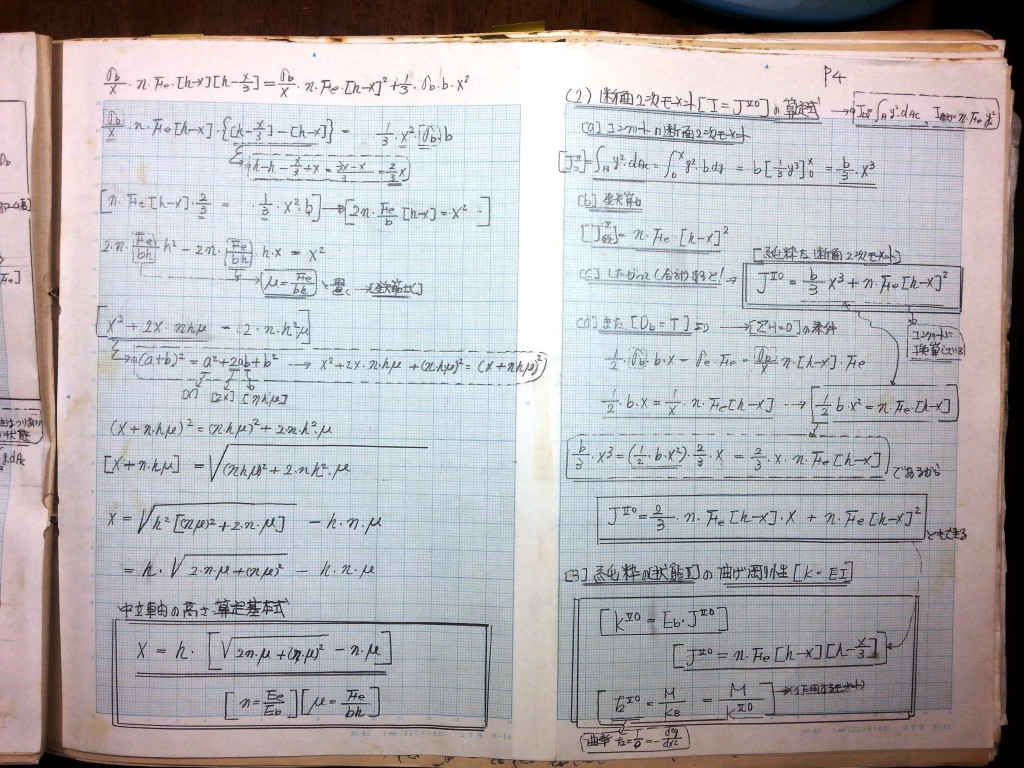 σb/x · n · Fe · [h-x][h-x/3] = σb/x · n · Fe · [h-x]² + 1/3 · σb · b · x²
σb/x · n · Fe[h-x] · {[h-x/3] - [h-x]} = 1/3 · x² [σb] b
h-h-x/3+x = 3x-x/3 = 2/3 x
[n · Fe[h-x] · 2/3 = 1/3 · x² · b] → [2n · Fe/b [h-x] = x²]
2 · n · Fe/bh h² - 2n · Fe/bh · h · x = x²
μ = Fe/bh と置く → [鉄筋比]
x² + 2x · nhμ = 2 · n · h² · μ
(a+b)² = a² + 2ab + b² → x² + 2x · n · h · μ + (n · h · μ)² = (x + nhμ)²
[x] [2x] [nhμ]
(x + n · h · μ)² = (n · h · μ)² + 2 · n · h² · μ
[x + n · h · μ] = √(nhμ)² + 2 · n · h² · μ
x = √h² [(nμ)² + 2 · n · μ] - h · n · μ
= h · √2 · n · μ + (nμ)² - h · n · μ
中立軸の高さ算定基本式
x = h · [√2n · μ + (n · μ)² - n · μ]
[n = Ee/Eb] [μ = Fe/bh]
P4
(2) 断面2次モーメント[J = J^II0]の算定式
[a] コンクリートの断面2次モーメント
= ∫A y² · dAc = ∫0^x y² · b · dy = b[1/3 y³]0^x = b/3 · x³
[b] 鉄筋
= n · Fe · [h-x]²
[純粋な断面2次モーメント]
[c] したがって(合計すると!) → J^II0 = b/3 x³ + n · Fe[h-x]²
コンクリートに
換算している
[d] また [Db = T] より → [ΣH=0]の条件
1/2 · σb · b · x = σe · Fe = σb/x n · [h-x] · Fe
1/2 · b · x = 1/x · n · Fe[h-x] → 1/2 b · x² = n · Fe · [h-x]
b/3 · x³ = (1/2 · b · x²) · 2/3 · x = 2/3 · x · n · Fe[h-x] であるから
J^II0 = 2/3 · n · Fe[h-x] · x + n · Fe[h-x]²
ともできる
[3] 純粋の状態Ⅱの曲げ剛性[K = EI]
[K^II0 = Eb · J^II0]
[J^II0 = n · Fe[h-x][h-x/3]]
= M/KB = M/K^II0] → (作用するモーメント)
曲率 = 1/ρ = - d²y/dx²